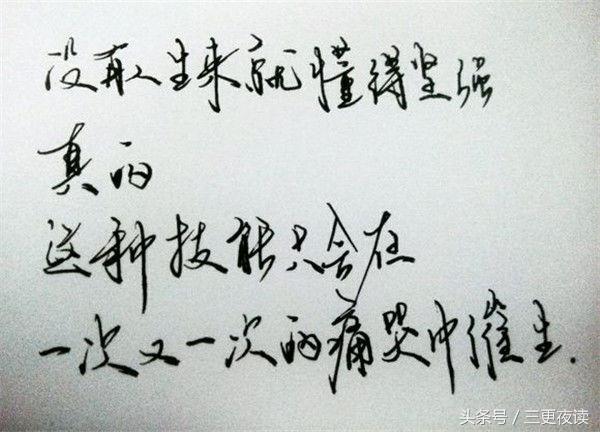 没有人生来就懂得坚强
真的
这种技能只会在
一次又一次的痛哭中催生.
头条号 / 三更夜读